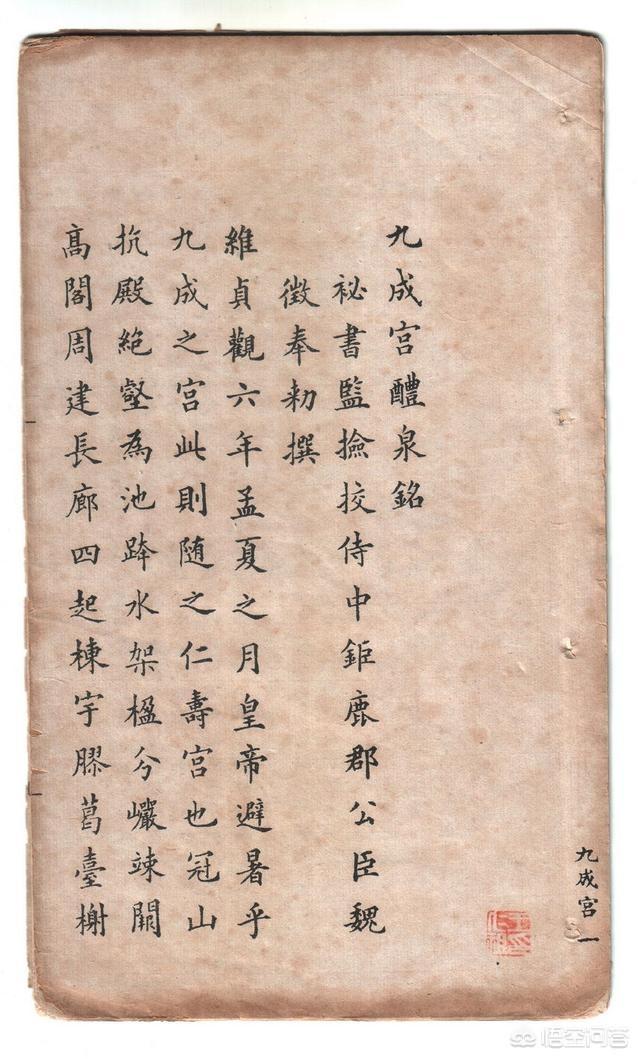 九成宮醴泉銘
祕書監撿挍侍中鉅鹿郡公臣魏
徵奉勑撰
維貞觀六年孟夏之月皇帝避暑乎
九成之宮此則随之仁壽宮也冠山
抗殿絶壑為池跨水架楹分巗竦闕
髙閣周建長廊四起棟宇膠葛臺榭
九成宮 一
悟空问答